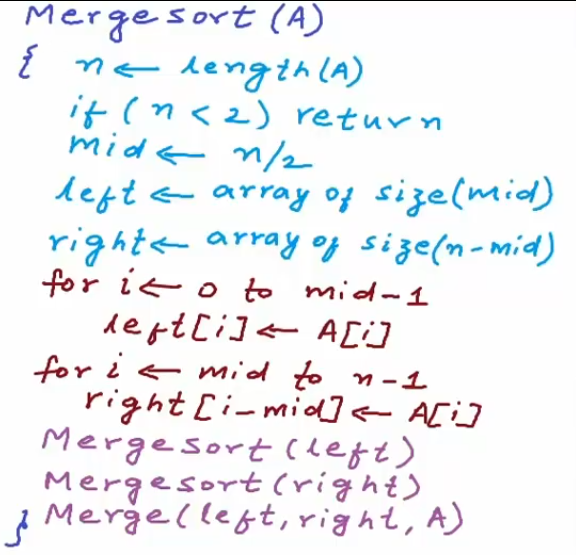 Mergesort(A)
{ n ← length(A)
if (n < 2) return
mid ← n/2
left ← array of size(mid)
right ← array of size(n-mid)
for i ← 0 to mid-1
left[i] ← A[i]
for i ← mid to n-1
right[i-mid] ← A[i]
Mergesort(left)
Mergesort(right)
} Merge(left, right, A)